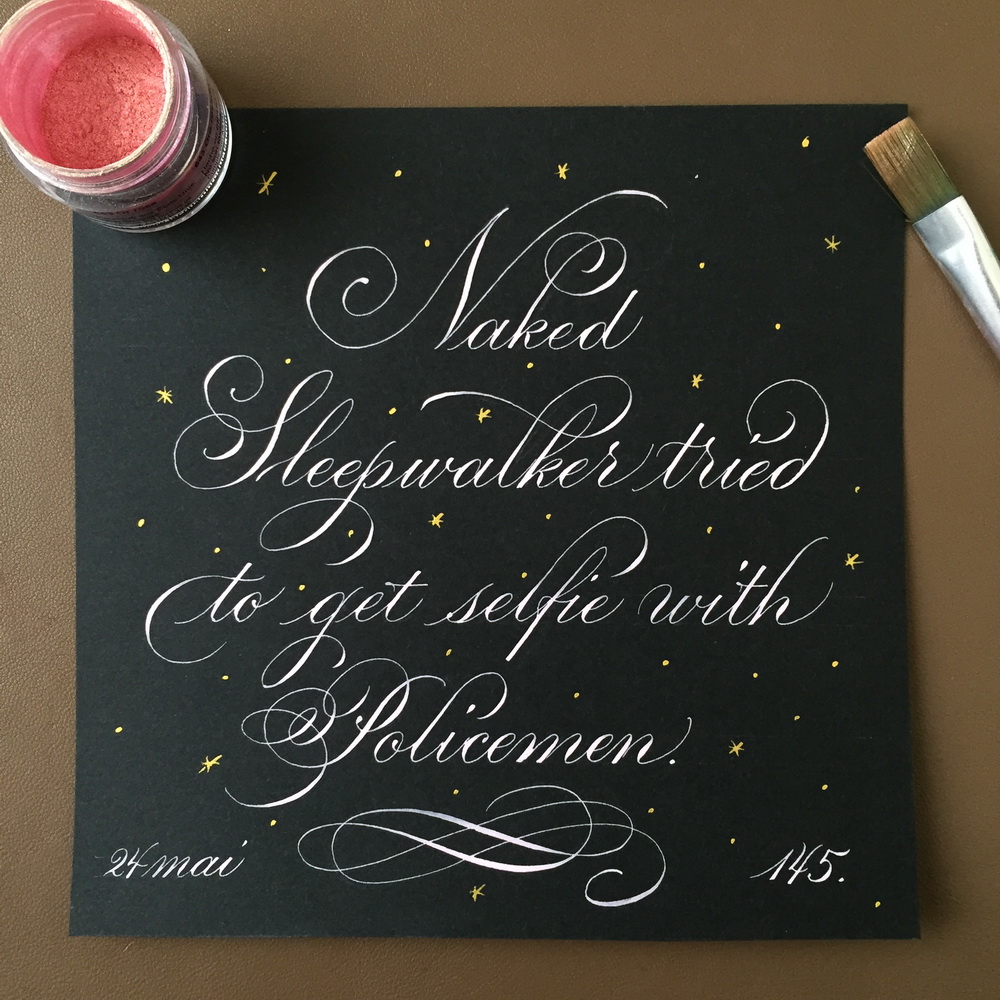 Naked
Sleepwalker tried
to get selfie with
Policemen.
24 mai
145.